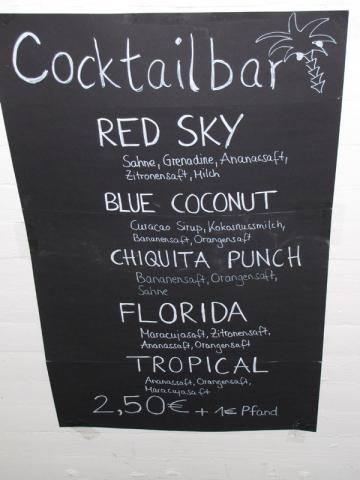 Cocktailbar
RED SKY
Sahne, Grenadine, Ananassaft,
Zitronensaft, Milch
BLUE COCONUT
Curacao Sirup, Kokosnussmilch,
Bananensaft, Orangensaft
CHIQUITA PUNCH
Bananensaft, Orangensaft,
Sahne
FLORIDA
Maracujasaft, Zitronensaft,
Ananassaft, Orangensaft
TROPICAL
Ananassaft, Orangensaft,
Maracujasaft
2,50€ + 1€ Pfand